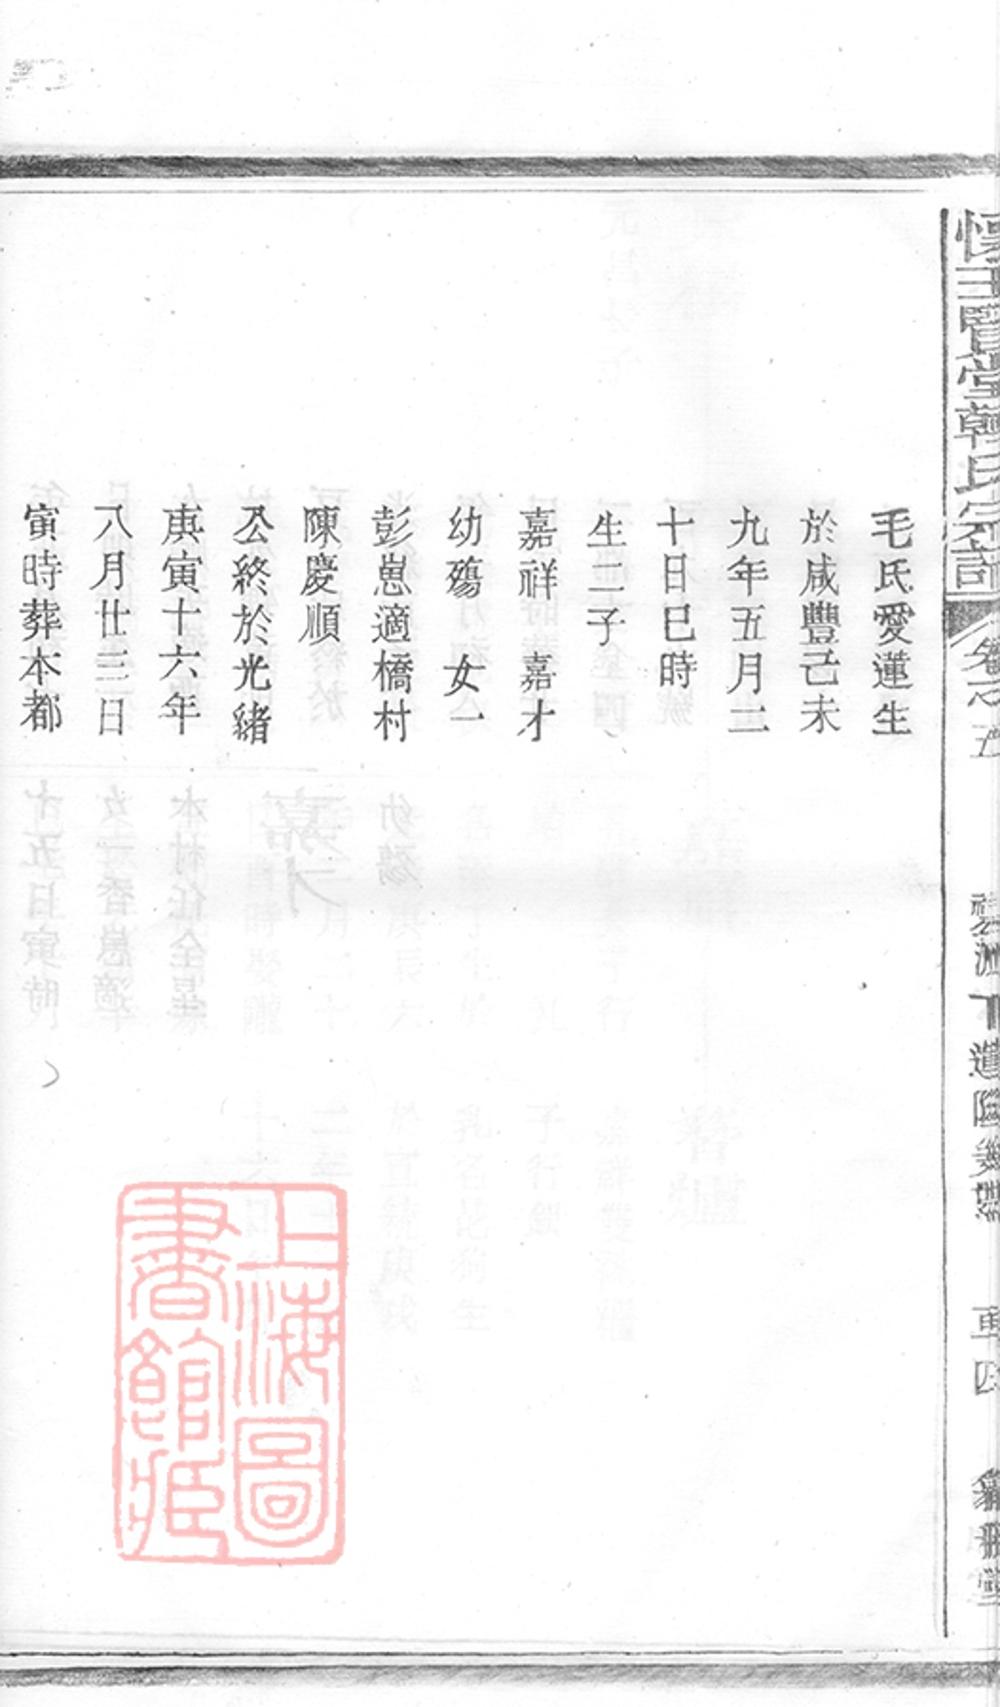 賢堂韓氏宗譜
卷之五
毛氏愛蓮生
於咸豐己未
九年五月二
十日巳時
生二子
嘉祥 嘉才
幼殤 女一
彭崽適橋村
陳慶順
公終於光緒
庚寅十六年
八月廿三日
寅時葬本都
上海圖
書館藏